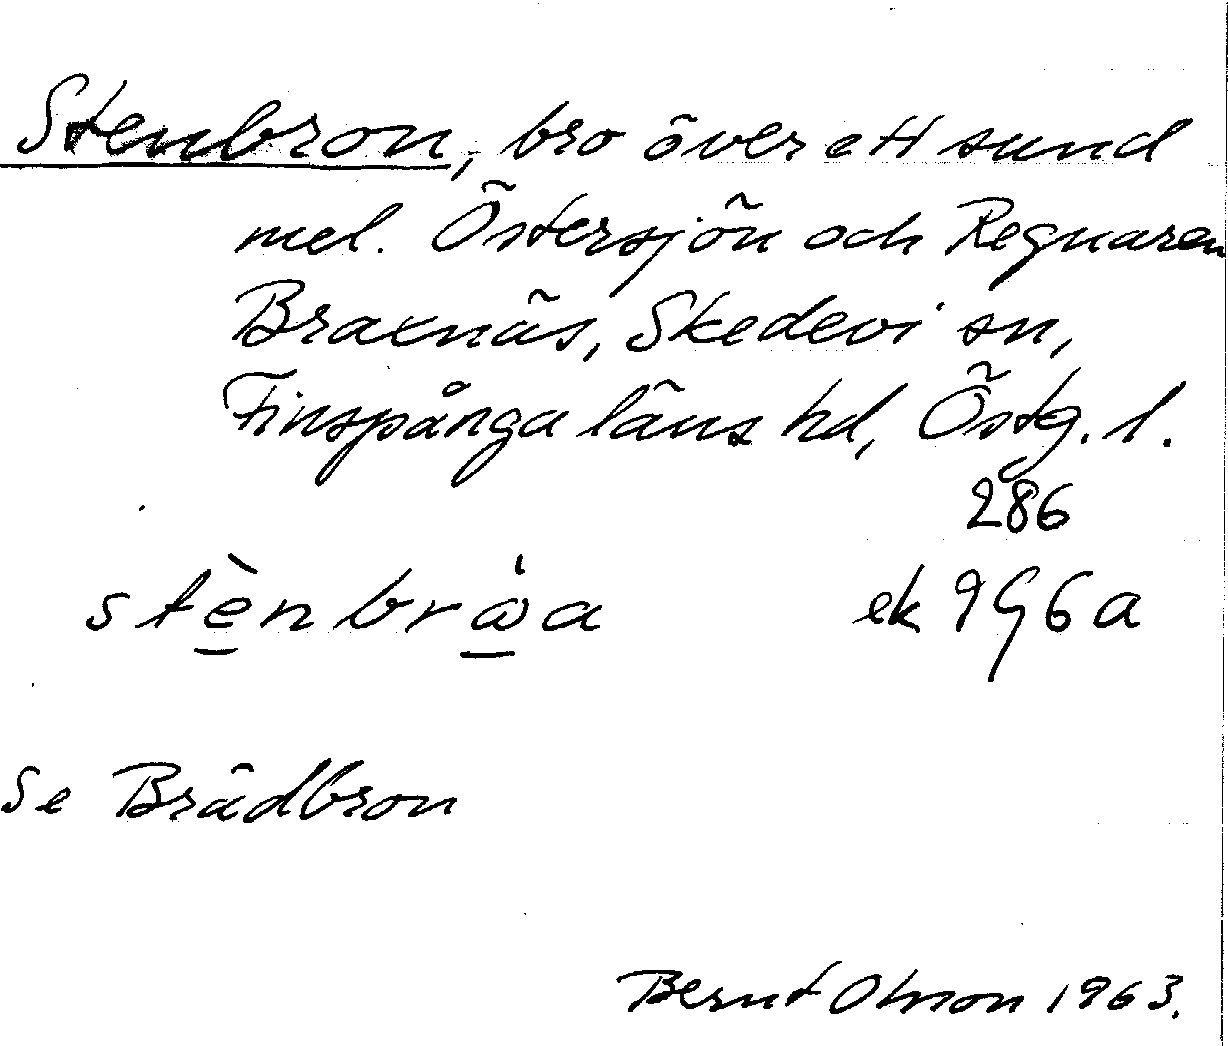 Stenbron, bro över ett sund
mel. Östersjön och Regnaren
Braxnäs, Skedevi sn,
Finspånga läns hd, Östg. l.
286
stènbrå̀a ek 9G6a
Se Brädbron
Bernt Olsson 1963.